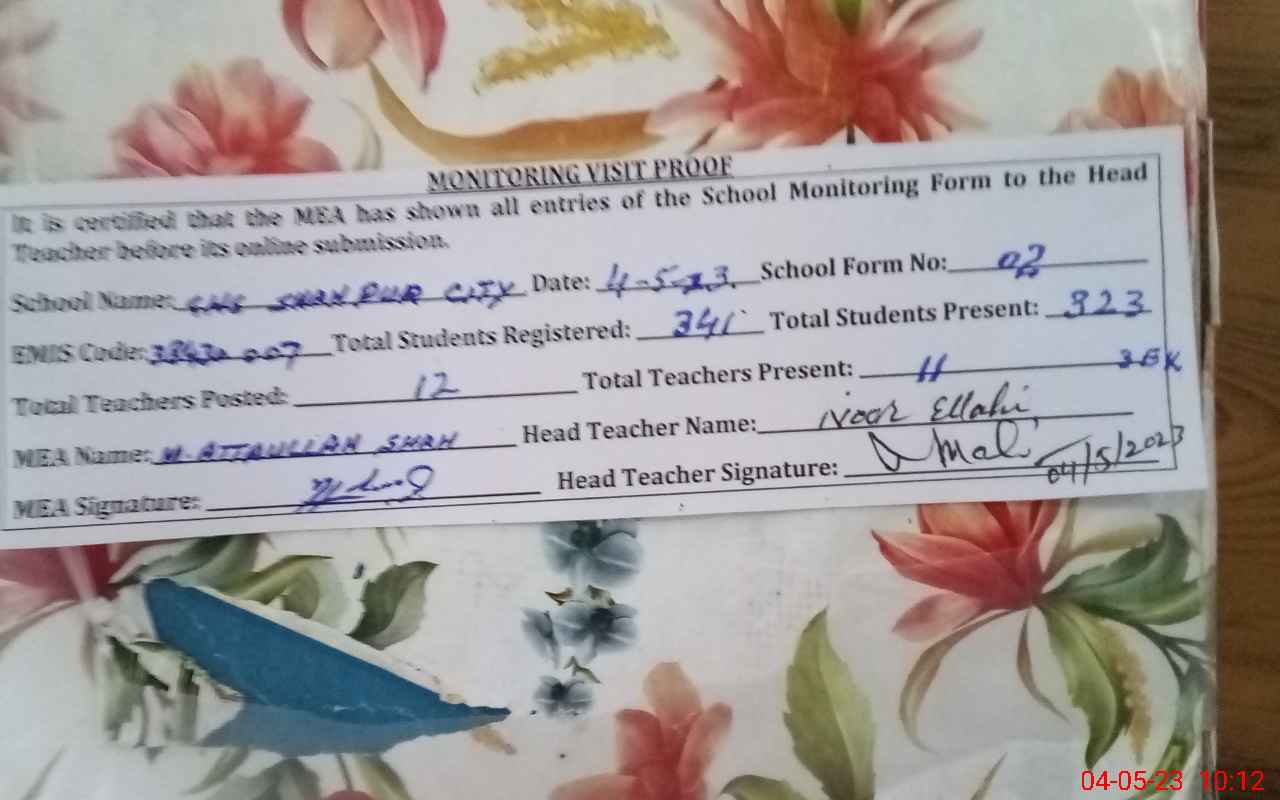 MONITORING VISIT PROOF
It is certified that the MEA has shown all entries of the School Monitoring Form to the Head
Teacher before its online submission.
School Name: GHS SHAH PUR CITY Date: 4-5-23. School Form No: 02
EMIS Code: Total Students Registered: 341 Total Students Present: 323
Total Teachers Posted: 12 Total Teachers Present: 11
MEA Name: M. ATTAULLAH SHAH Head Teacher Name: Noor Ellahi
MEA Signature: Head Teacher Signature: 04/5/2023
04-05-23 10:12